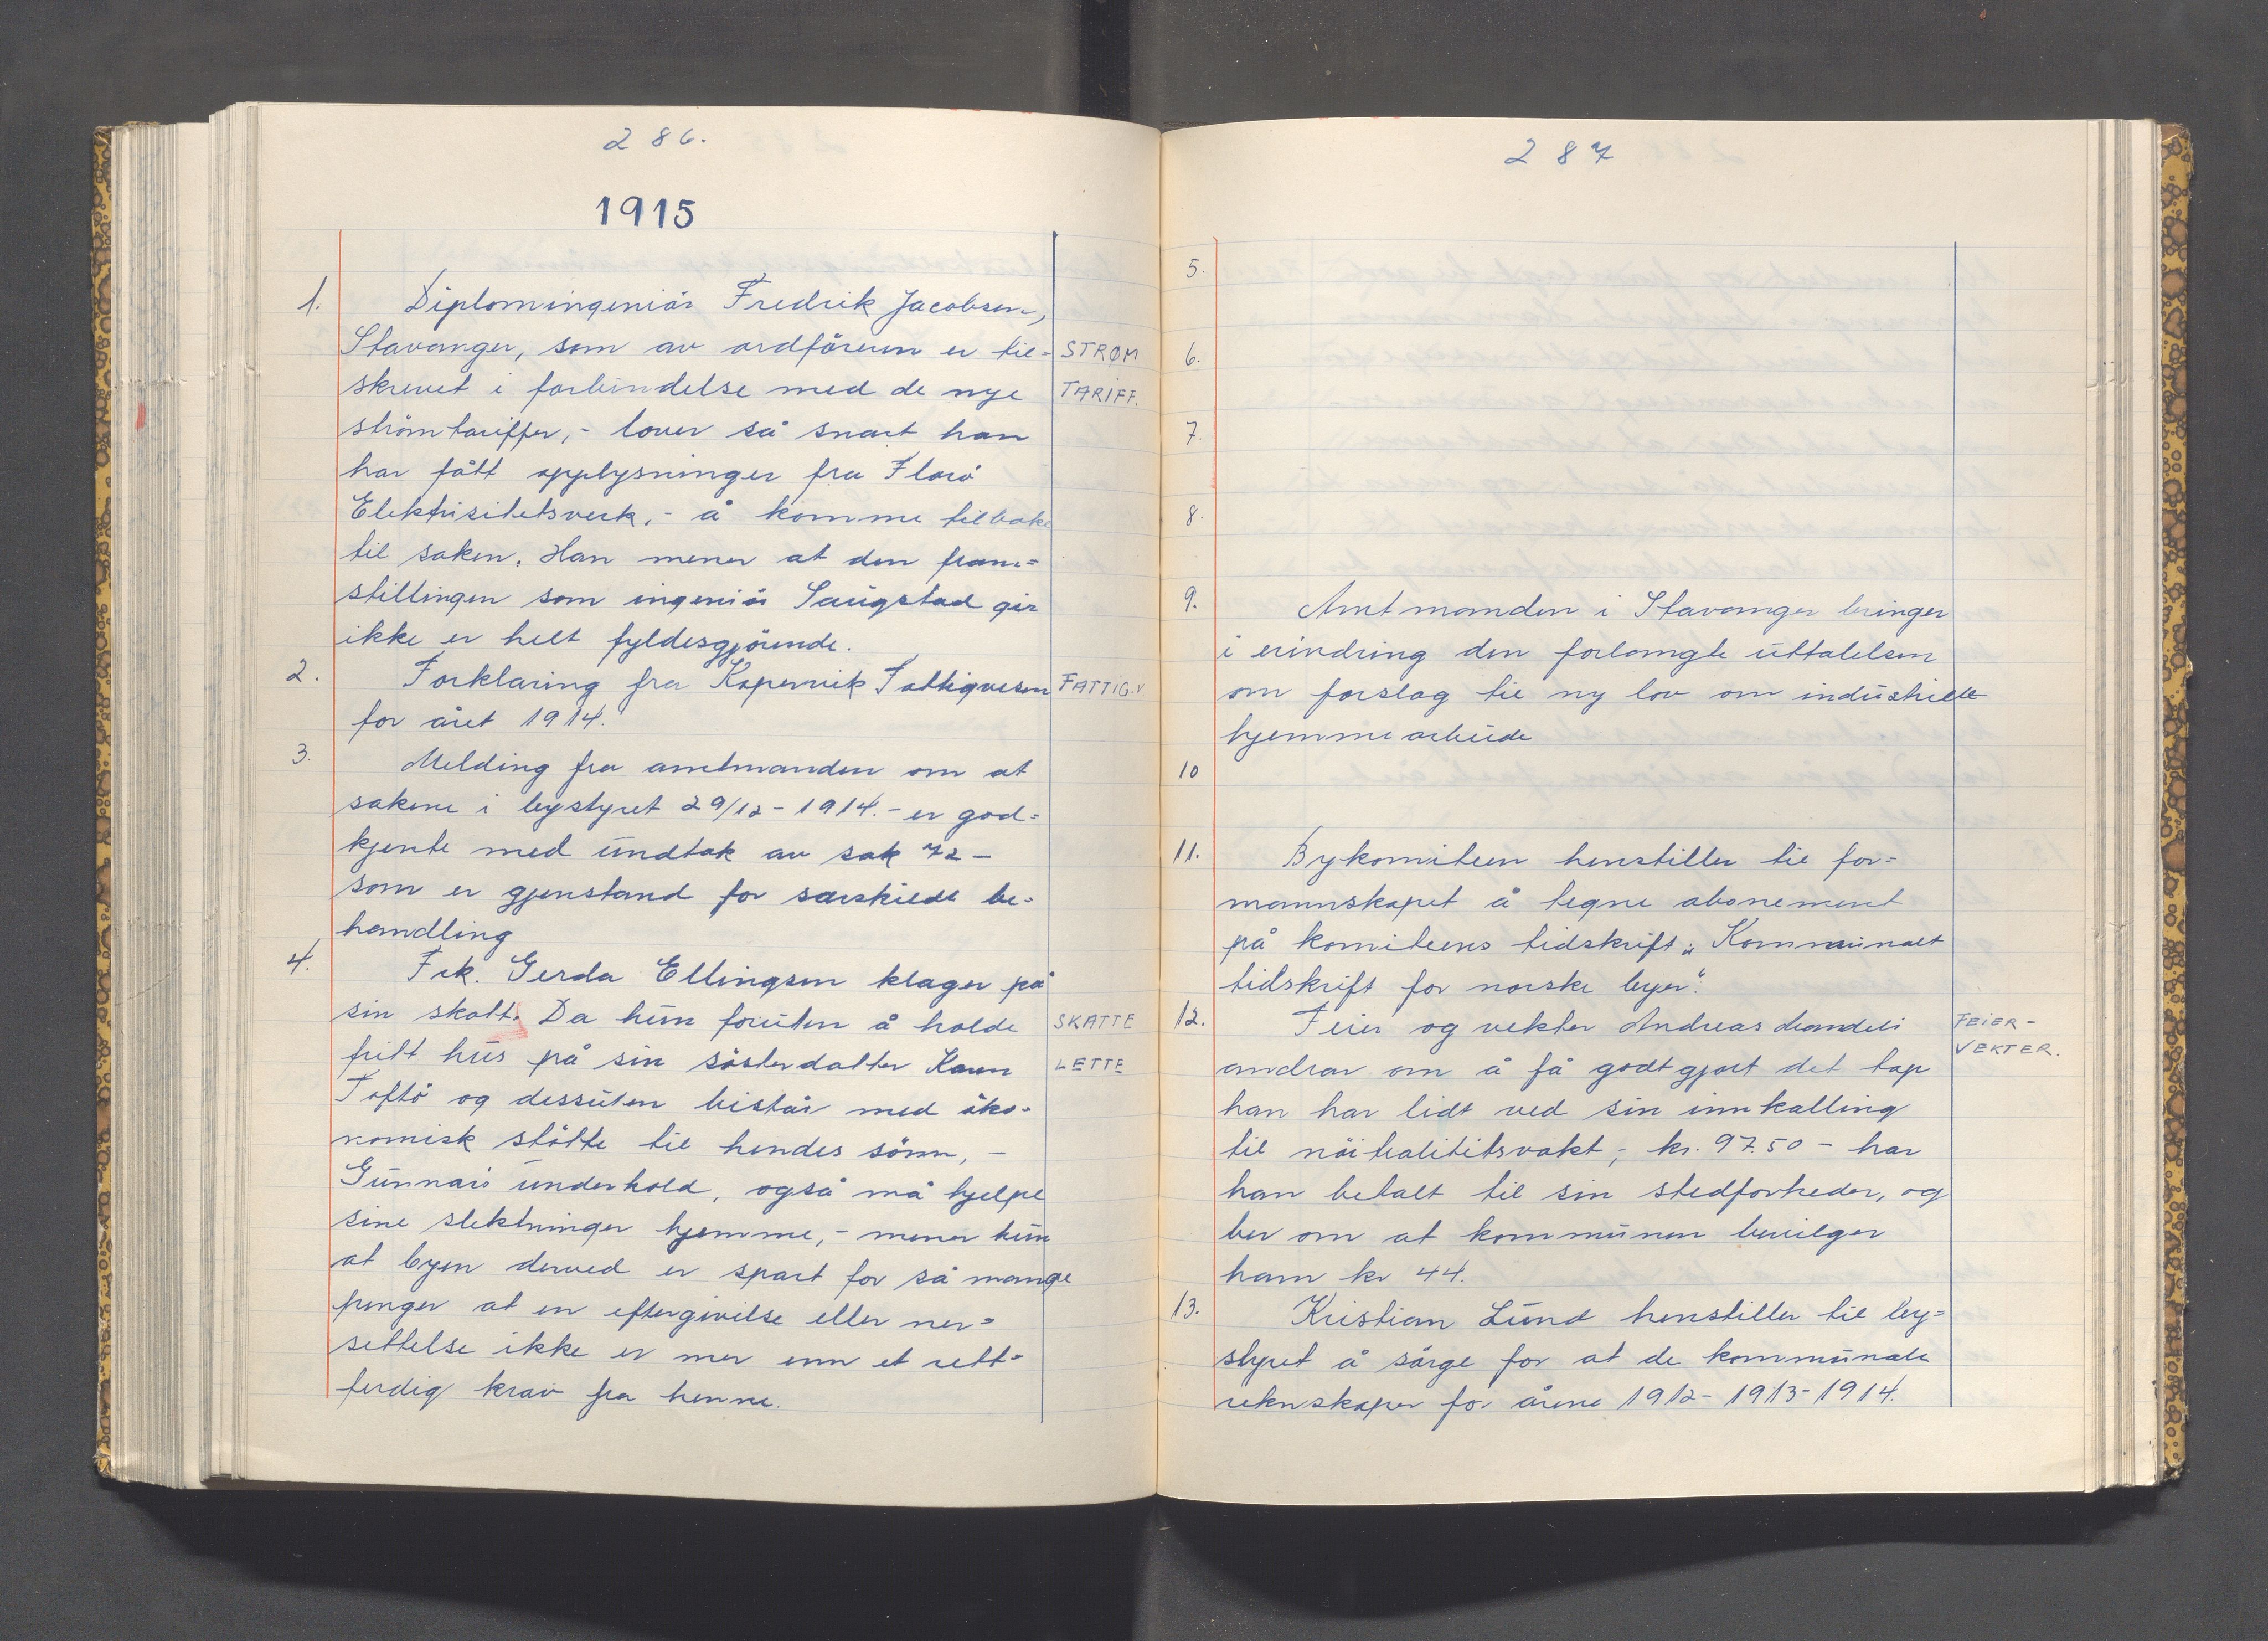 286.
1915
1. Diplomingeniör Fredrik Jacobsen,
Stavanger, som av ordföreren er til- STRØM
skrevet i forbindelse med de nye TARIFF.
strömtariffer,- lover så snart han
har fått opplysninger fra Florö
Elektrisitetsverk,- å komme tilbake
til saken. Han mener at den fram=
stillingen som ingeniör Saugstad gir
ikke er helt fyldesgjörende.
2. Forklaring fra Kopervik Fattigvesen FATTIG.V.
for året 1914.
3. Melding fra amtmanden om at
sakene i bystyret 29/12-1914.- er god=
kjente med undtak av sak 72-
som er gjenstand for særskildt be-
handling
4. Frk. Gerda Ellingsen klager på
sin skatt. Da hun foruten å holde SKATTE
fritt hus på sin søsterdatter Karen LETTE
Toftö og dessuten bistår med öko-
nomisk stötte til hendes sönn, -
Gunnars underhold, også må hjelpe
sine slektninger hjemme,- mener hun
at byen derved er spart for så mange
penger at en eftergivelse eller ner=
settelse ikke er mer enn et rett=
ferdig krav fra henne.
287
5.
6.
7.
8.
9. Amtmanden i Stavanger bringer
i erindring den forlangte uttalelsen
om forslag til ny lov om industrielt
hjemmearbeide
10
11. Bykomiteen henstiller til for=
mannskapet å tegne abonement
på komiteens tidskrift „Kommunalt
tidskrift for norske byer".
12. Feier og vekter Andreas FEIER-
andrar om å få godtgjort det tap VEKTER.
han har lidt ved sin innkalling
til nöitralititsvakt,- kr. 97.50 - har
han betalt til sin stedfortreder, og
ber om at kommunen bevilger
ham kr 44.
13. Kristian Lund henstiller til by=
styret å sörge for at de kommunale
reknskaper for årene 1912-1913-1914.